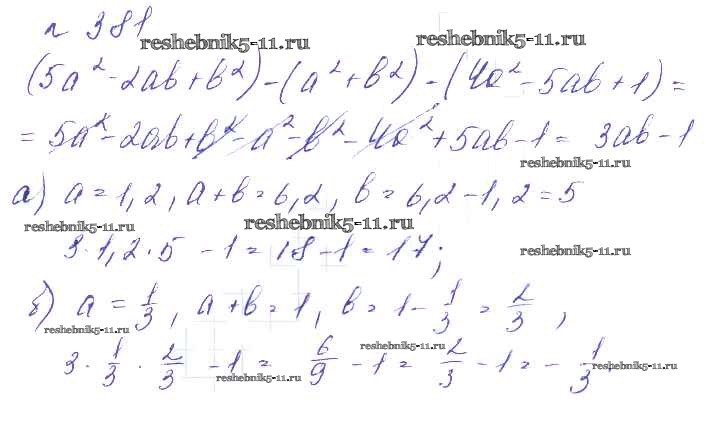 № 381
reshebnik5-11.ru reshebnik5-11.ru
(5a² - 2ab + b²) - (a² + b²) - (4a² - 5ab + 1) =
= 5a² - 2ab + b² - a² - b² - 4a² + 5ab - 1 = 3ab - 1
reshebnik5-11.ru
а) a = 1,2, a + b = 6,2, b = 6,2 - 1,2 = 5
reshebnik5-11.ru reshebnik5-11.ru
3 · 1,2 · 5 - 1 = 18 - 1 = 17;
reshebnik5-11.ru
б) a = 1/3, a + b = 1, b = 1 - 1/3 = 2/3,
reshebnik5-11.ru reshebnik5-11.ru
3 · 1/3 · 2/3 - 1 = 6/9 - 1 = 2/3 - 1 = - 1/3.
reshebnik5-11.ru reshebnik5-11.ru